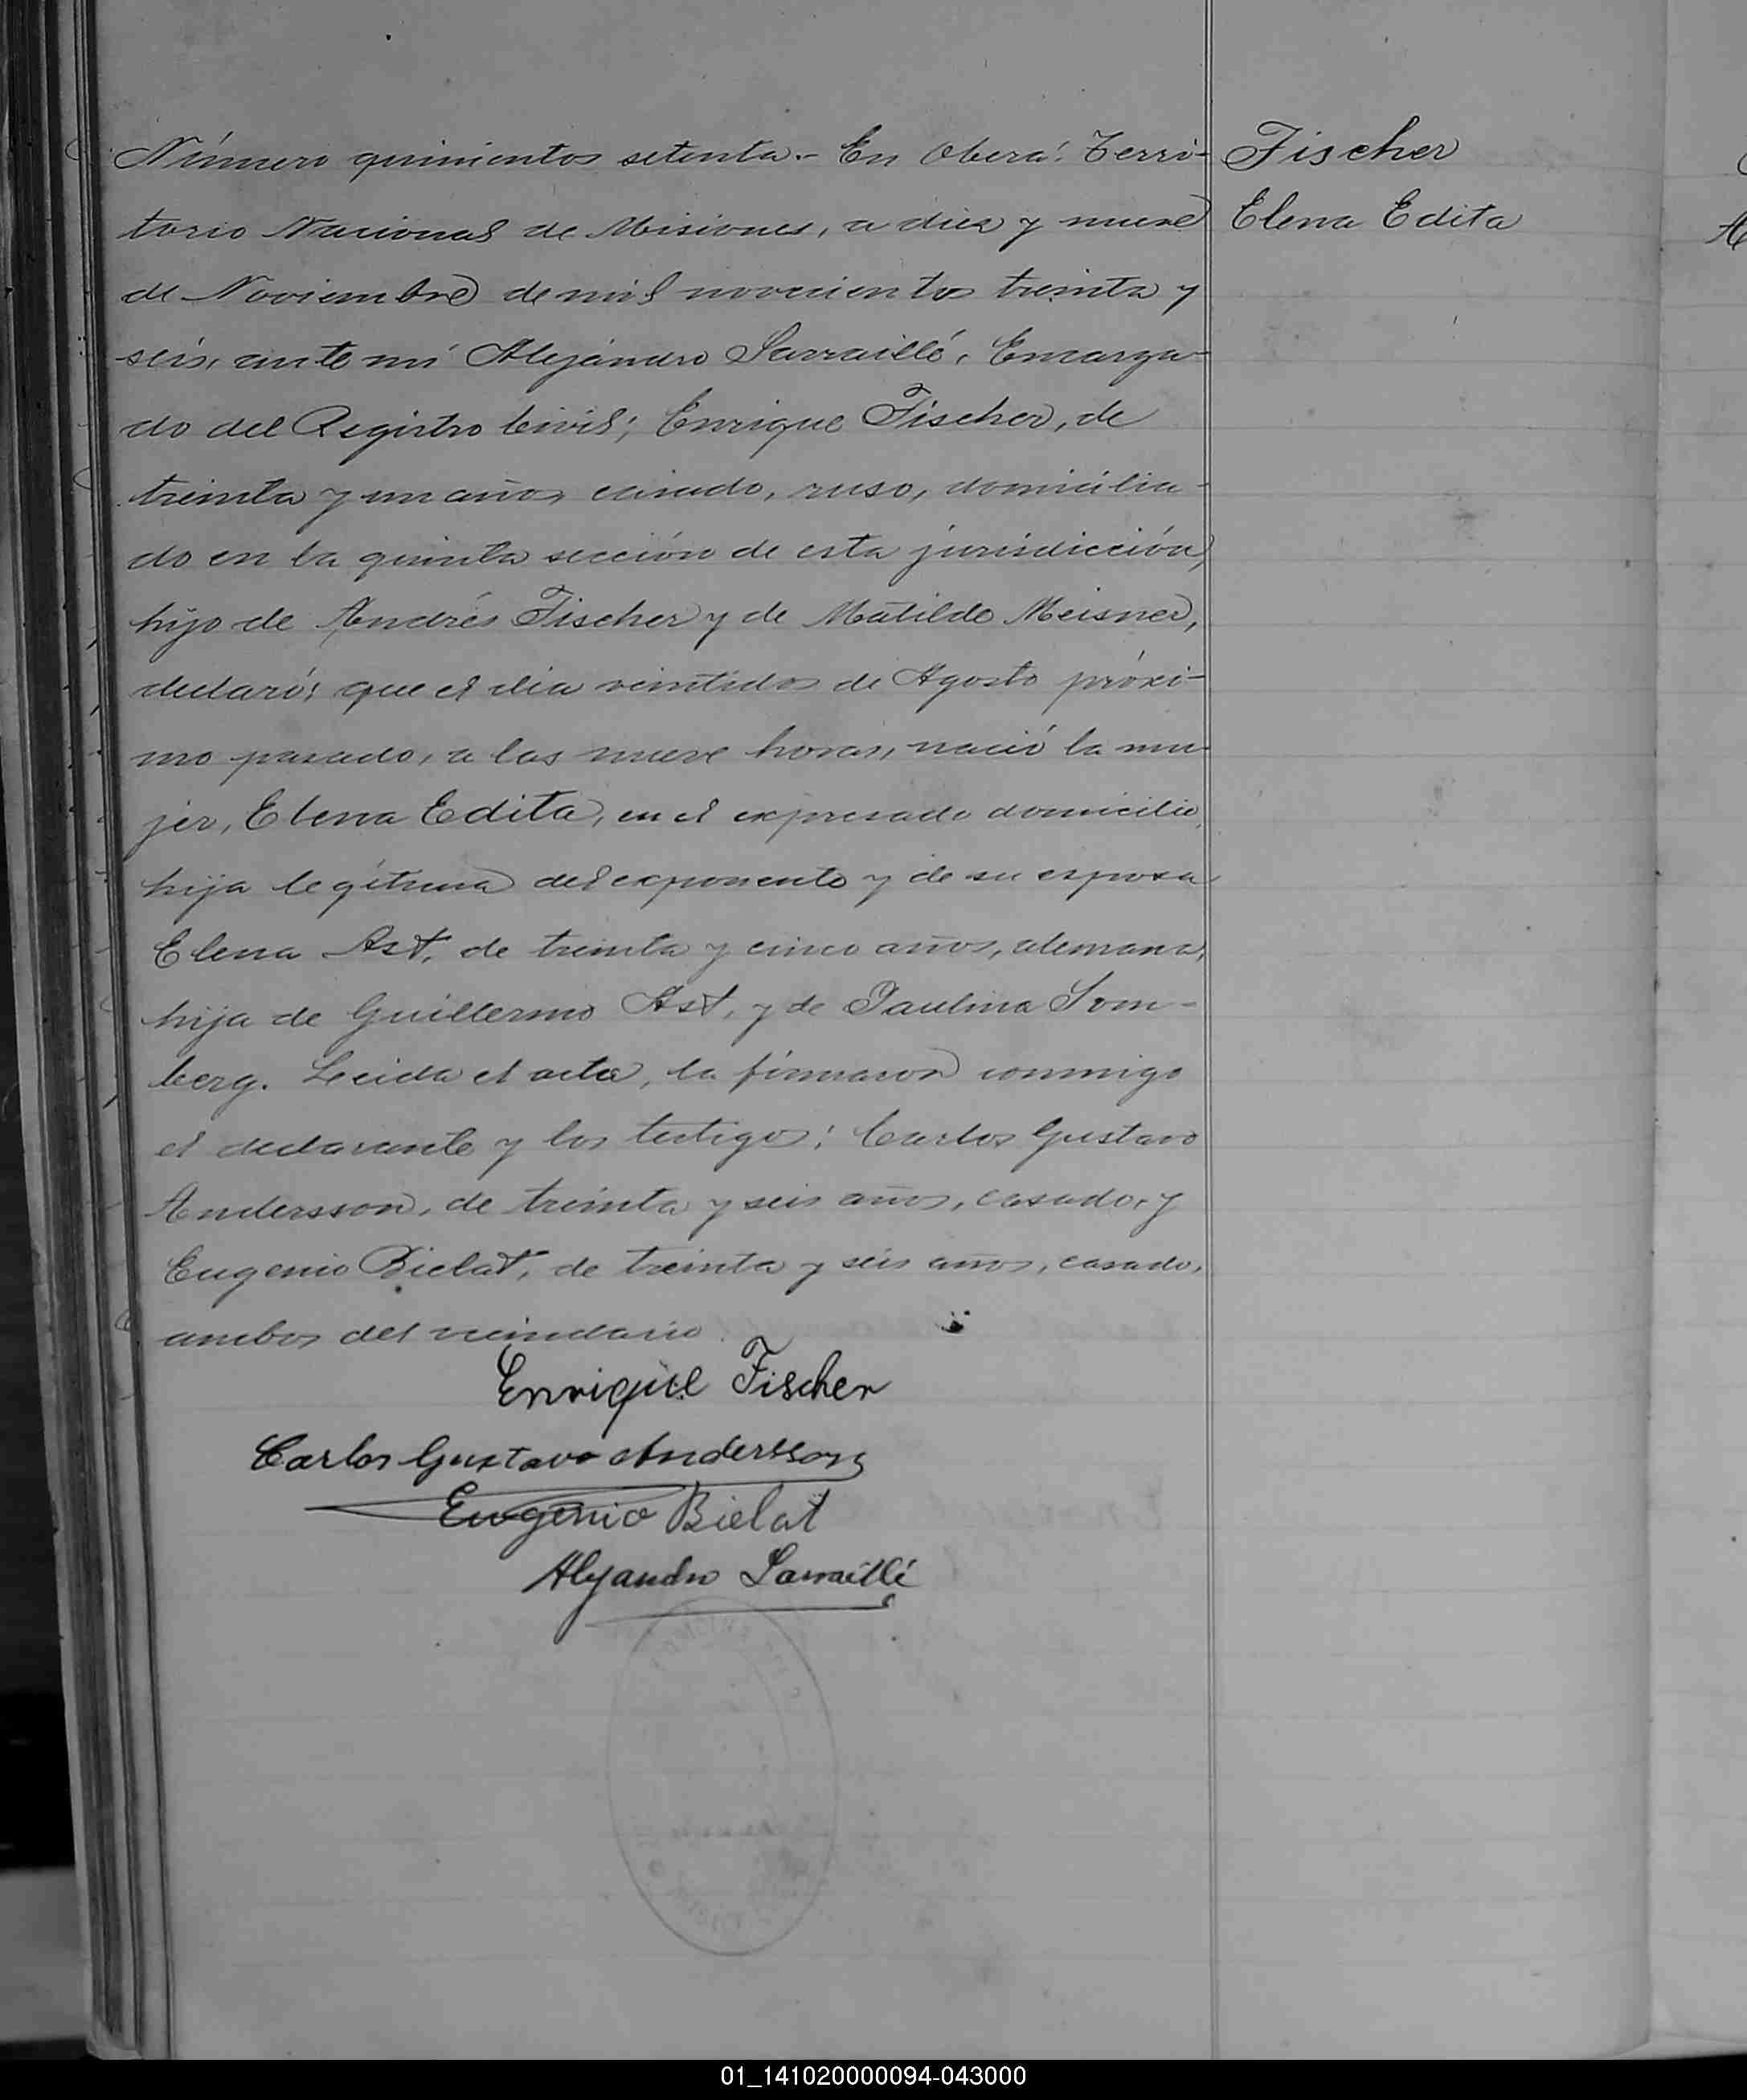 Número quinientos setenta.- En Oberá. Terri-
torio Nacional de Misiones, a diez y nueve
de Noviembre de mil novecientos treinta y
seis, ante mí Alejandro Sarraillé, Encarga-
do del Registro Civil; Enrique Fischer, de
treinta y un años, casado, ruso, domicilia-
do en la quinta sección de esta jurisdicción,
hijo de Andrés Fischer y de Matilde Meisner,
declaró: que el día veintidos de Agosto próxi-
mo pasado, a las nueve horas, nació la mu-
jer, Elena Edita, en el expresado domicilio,
hija legítima del exponente y de su esposa
Elena Ast, de treinta y cinco años, alemana,
hija de Guillermo Ast, y de Paulina Som-
berg. Leida el acta, la firmaron conmigo
el declarante y los testigos: Carlos Gustavo
Andersson, de treinta y seis años, casado, y
Eugenio Bielat, de treinta y seis años, casado,
ambos del vecindario.
Enrique Fischer
Carlos Gustavo Andersson
Eugenio Bielat
Alejandro Sarraillé
Fischer
Elena Edita
01_141020000094-043000